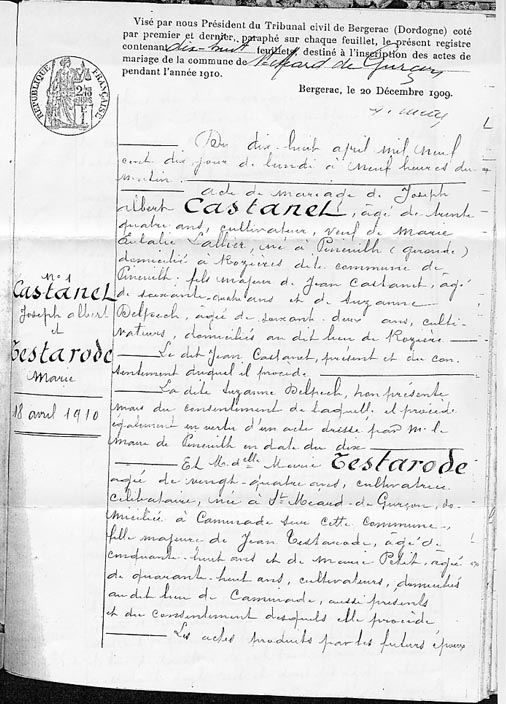 Visé par nous Président du Tribunal civil de Bergerac (Dordogne) coté
par premier et dernier, paraphé sur chaque feuillet, le présent registre
contenant dix-huit feuillets, destiné à l'inscription des actes de
mariage de la commune de St Méard de Gurçon
pendant l'année 1910.
Bergerac, le 20 Décembre 1909.
RÉPUBLIQUE FRANÇAISE
Du dix-huit avril mil neuf
cent dix jour de lundi à neuf heures du
matin.
acte de mariage de Joseph
Albert Castanet, âgé de trente
quatre ans, cultivateur, veuf de Marie
Eulalie, né à Pineuilh (Gironde)
domicilié à Rozières dite commune de
Pineuilh. fils majeur de Jean Castanet, âgé
de soixante-quatre ans et de Suzanne
Delpech, âgée de soixant-deux ans, culti-
vateurs, domiciliés au dit lieu de Rozières.
Le dit Jean Castanet, présent et du con-
sentement duquel il procède
La dite Suzanne Delpech, non présente
mais du consentement de laquelle il procède
également en vertu d'un acte dressé par M. le
Maire de Pineuilh en date du dix
Et M.delle Marie Testarode
agée de vingt-quatre ans, cultivatrice
célibataire, née à St Méard-de-Gurçon, do-
miciliée à Caminade sur cette commune,
fille majeure de Jean Testarode, âgé de
cinquante-huit ans et de Marie Petit, agée
de quarante-huit ans, cultivateurs, domiciliés
au dit lieu de Caminade, aussi présents
et du consentement desquels elle procède
Les actes produits par les futurs époux
N° 1
Castanet
Joseph Albert
et
Testarode
Marie
18 avril 1910